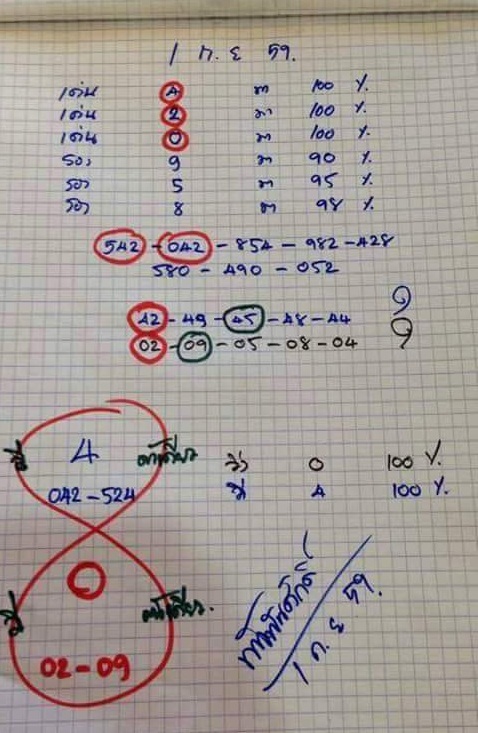 1 ก.ย 59.
เด่น 4 มา 100 %
เด่น 2 มา 100 %
เด่น 0 มา 100 %
รอง 9 มา 90 %
รอง 5 มา 95 %
รอง 8 มา 98 %
542 - 042 - 854 - 982 - 428
580 - 490 - 052
42 - 49 - 45 - 48 - 44
02 - 09 - 05 - 08 - 04
4 ตัวเดียว
042 - 524
0 100 %
4 100 %
0
ตัวเดียว.
02 - 09
1 ก.ย 59.